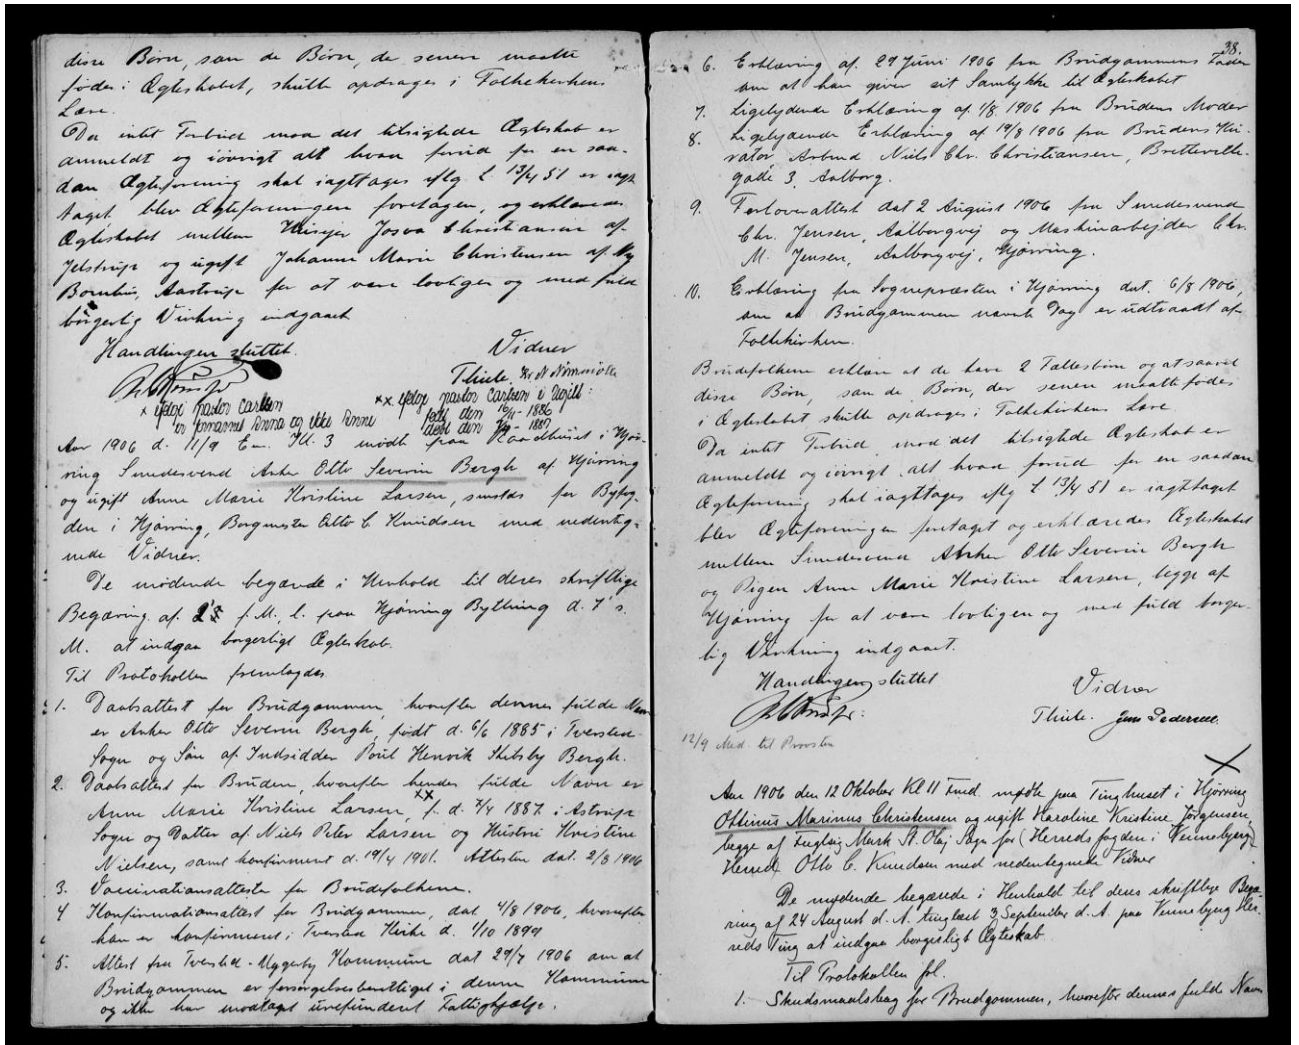 disse Børn, som de Børn, de senere maatte
fødes i Ægteskabet, skulle opdrages i Folkekirkens
Lære.
Da intet Forbud mod det tilsigtede Ægteskab er
anmeldt og iøvrigt alt hvad forud for en saa-
dan Ægteforening skal iagttages eflg L 13/4 51 er iagt
taget blev Ægteforeningen foretagen, og erklæredes
Ægteskabet mellem Husejer Josva Christiansen af
Jelstrup og ugift Johanne Marie Christensen af Ny
Bornhus, Aastrup for at være lovligen og med fuld
borgerlig Virkning indgaaet
Handlingen sluttet.
Vidner
Thiele.
x ifølge pastor Carlsen
er fornavnet Anna og ikke Anne
xx ifølge pastor Carlsen i Ugilt:
født den 16/11 - 1886
døbt den 7/4 - 1887
Aar 1906 d. 11/9 Em. Kl. 3 mødte paa Raadhuset i Hjør-
ring Smedesvend Anker Otto Severin Bergh af Hjørring
og ugift Anne Marie Kristine Larsen, smstds for Byfog-
den i Hjørring, Borgmester Otto C Knudsen med nedenteg-
nede Vidner.
De mødende begærede i Henhold til deres skriftlige
Begæring af f. M. l. paa Hjørring Bything d. 7' s.
M. at indgaa borgerligt Ægteskab.
Til Protokollen fremlagdes
1. Daabsattest for Brudgommen, hvorefter dennes fulde Navn
er Anker Otto Severin Bergh, født d. 6/6 1885 i Tversted
Sogn og Søn af Indsidder Poul Henrik Stibsby Bergh.
2. Daabsattest for Bruden, hvorefter hendes fulde Navn er
Anne Marie Kristine Larsen, xx f. d. 7/4 1887 i Astrup
Sogn og Datter af Niels Peter Larsen og Hustru Kristine
Nielsen, samt konfirmeret d. 14/4 1901. Attesten dat. 2/8 1906
3. Vaccinationsatteste for Brudefolkene.
4 Konfirmationsattest for Brudgommen, dat 4/8 1906, hvorefter
han er konfirmeret i Tversted Kirke d. 1/10 1899
5. Attest fra Tversted-Uggerby Kommune dat 29/7 1906 om at
Brudgommen er forsørgelsesberettiget i denne Kommune
og ikke har modtaget urefunderet Fattighjælp.
38.
6. Erklæring af 29 Juni 1906 fra Brudgommens Fader
om at han giver sit Samtykke til Ægteskabet
7. Ligelydende Erklæring af 1/8 1906 fra Brudens Moder
8. Ligelydende Erklæring af 19/8 1906 fra Brudens Ku-
rator Arbmd Niels Chr. Christiansen, Brettevilles-
gade 3, Aalborg.
9. Forloverattest dat 2 August 1906 fra Smedesvend
Chr. Jensen, Aalborgvej og Maskinarbejder Chr.
M. Jensen, Aalborgvej, Hjørring.
10. Erklæring fra Sognepræsten i Hjørring dat. 6/8 1906,
om at Brudgommen nævnte Dag er udtraadt af
Folkekirken.
Brudefolkene erklære at de have 2 Fællesbørn og at saavel
disse Børn, som de Børn, der senere maatte fødes
i Ægteskabet skulle opdrages i Folkekirkens Lære
Da intet Forbud mod det tilsigtede Ægteskab er
anmeldt og iøvrigt alt hvad forud for en saadan
Ægteforening skal iagttages eflg L 13/4 51 er iagttaget
blev Ægteforeningen foretaget og erklæredes Ægteskabet
mellem Smedesvend Anker Otto Severin Bergh
og Pigen Anne Marie Kristine Larsen, begge af
Hjørring for at være lovligen og med fuld borger-
lig Virkning indgaaet.
Handlingen sluttet
Vidner
Thiele. Jens Pedersen
12/9 Med. til Provsten
Aar 1906 den 12 Oktober Kl 11 Fmd. mødte paa Tinghuset i Hjørring
Ottinus Marinus Christensen og ugift Karoline Kristine Jørgensen,
begge af Fuglsig Mark St. Olaj Sogn for (Herredsfogden i Vennebjerg)
Herred Otto C. Knudsen med nedentegnede Vidner
De mødende begærede i Henhold til deres skriftlige Begæ-
ring af 24 August d. A. tinglæst 3 September d. A. paa Vennebjerg Her-
reds Ting at indgaa borgerligt Ægteskab.
Til Protokollen fol.
1. Skudsmaalsbog for Brudgommen, hvorefter dennes fulde Navn